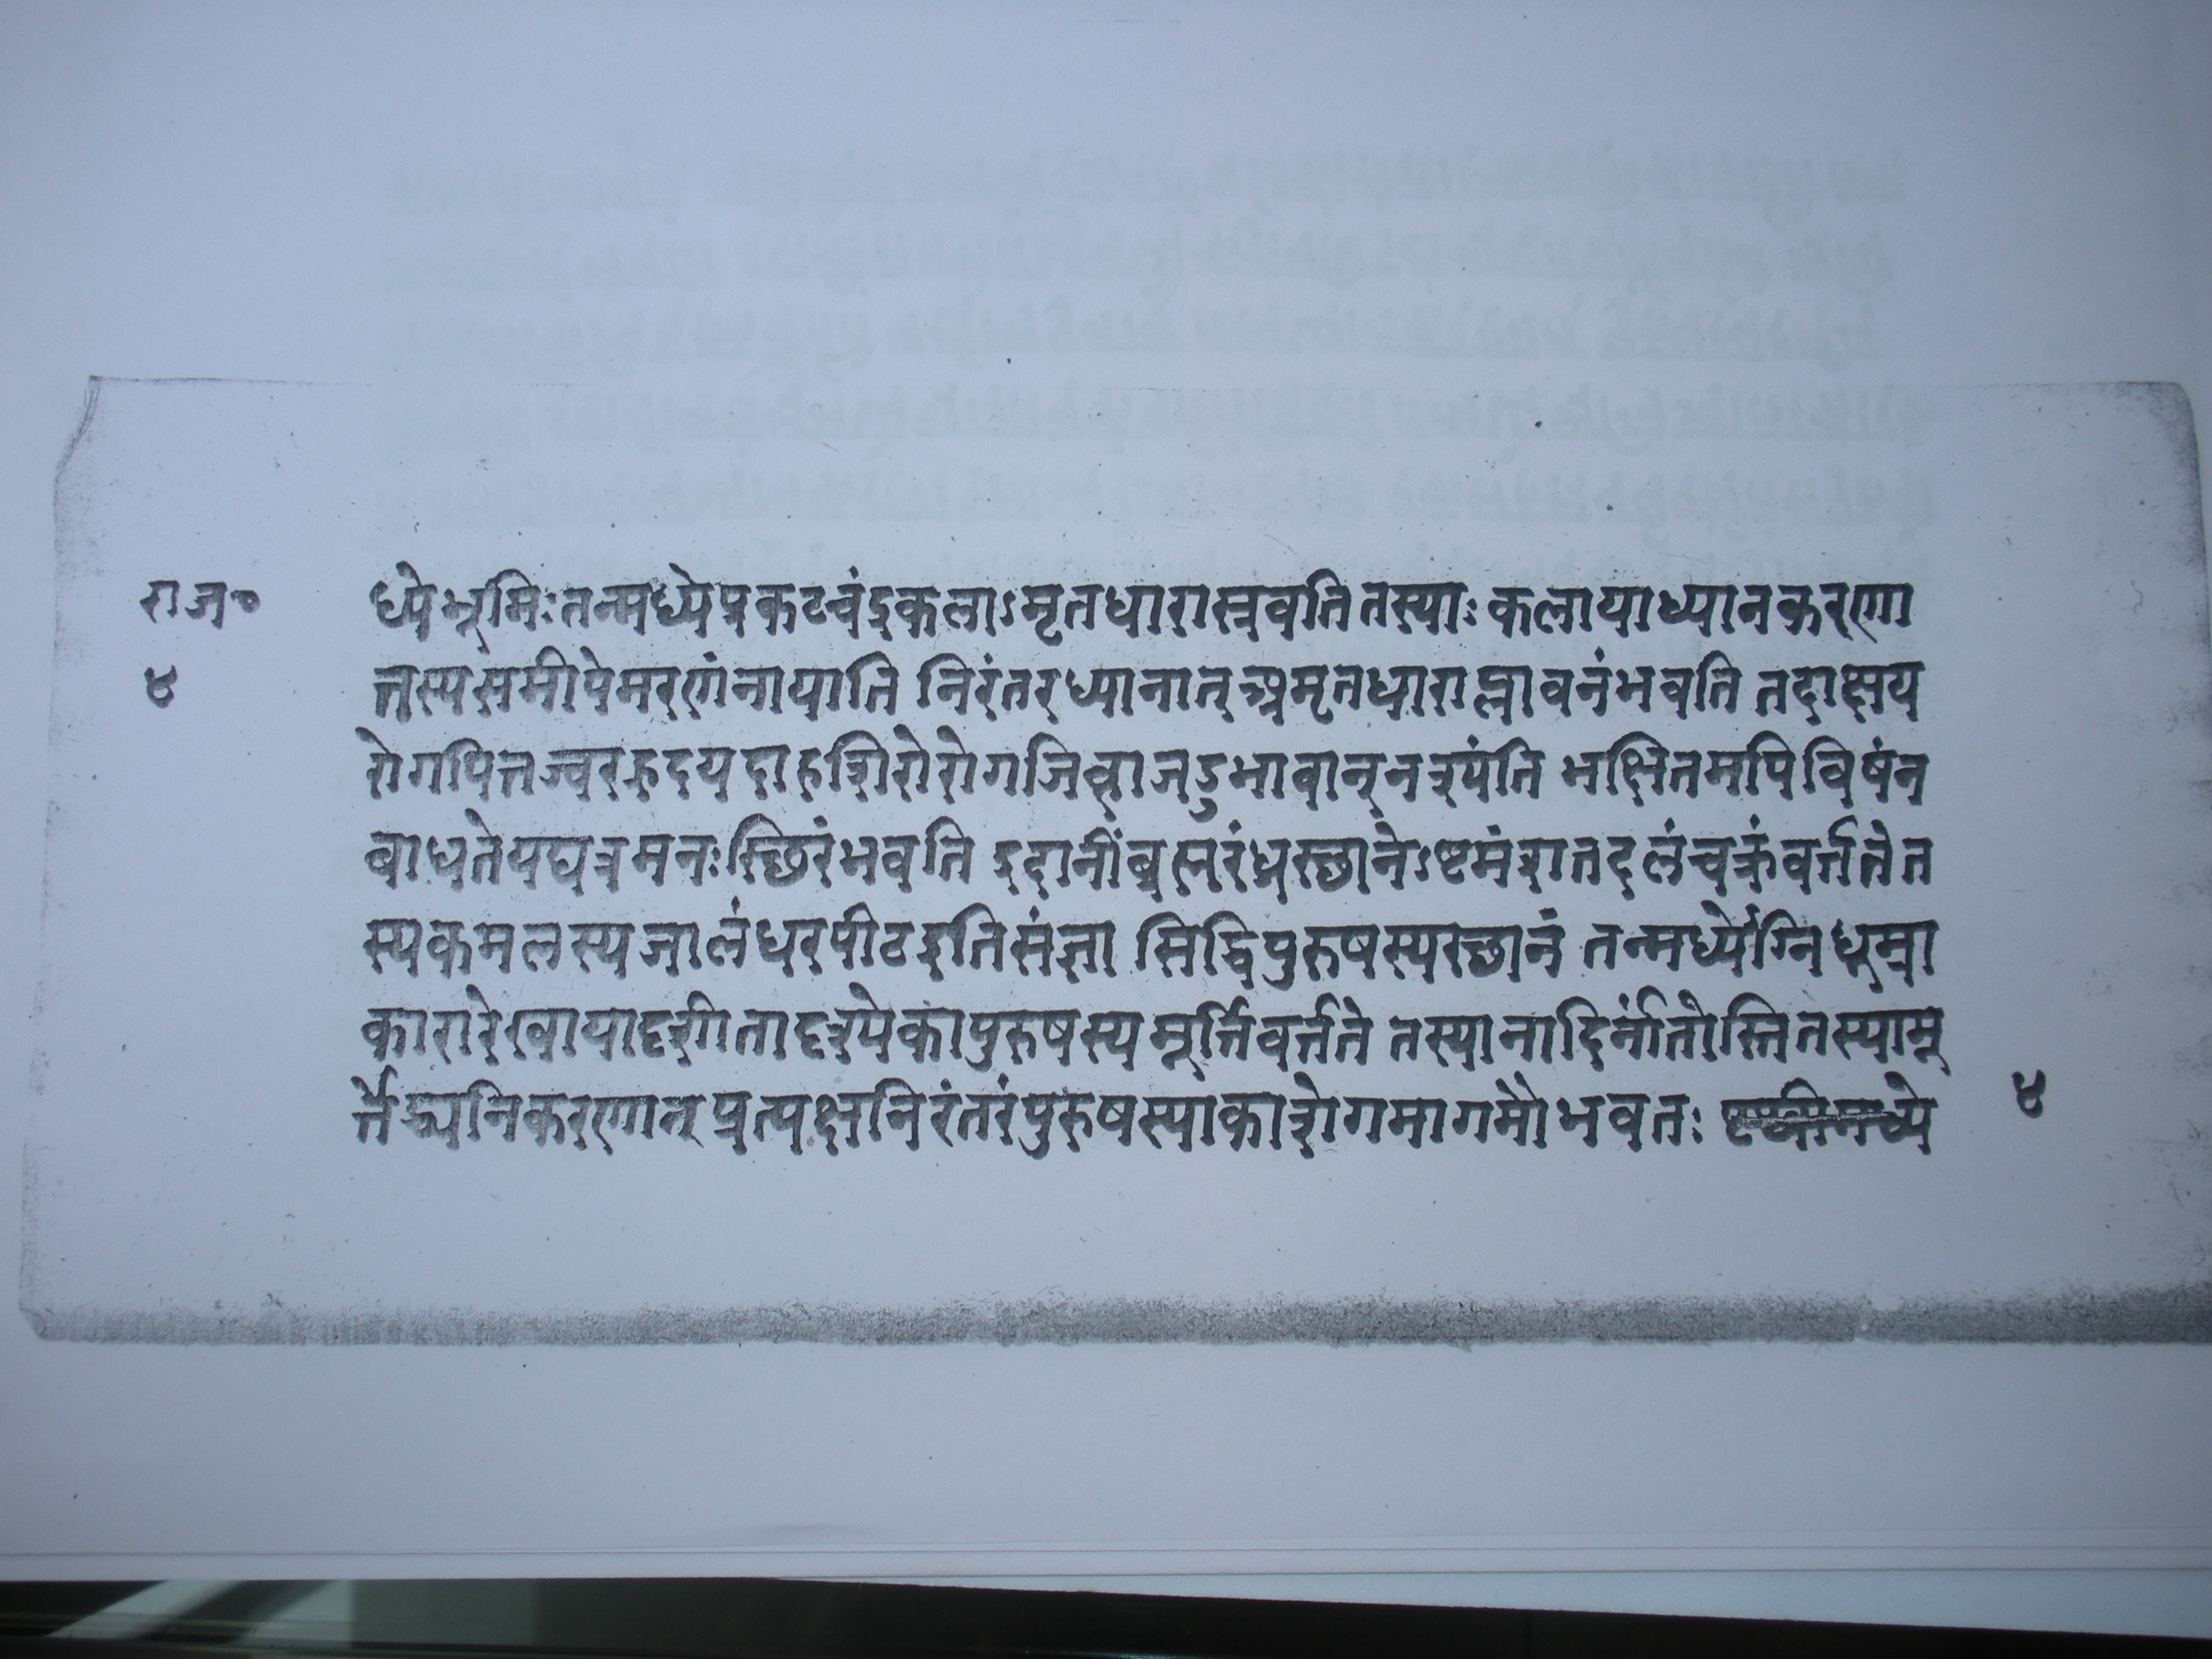 राज॰
४
ध्येभूमिः तन्मध्येप्रकटचंद्रकलाऽमृतधारास्रवति तस्याः कलायाध्यानकरणा
त्तस्यसमीपेमरणंनायाति निरंतरध्यानात् अमृतधाराप्लावनंभवति तदाक्षय
रोगपित्तज्वरहृदयदाहशिरोरोगजिह्वाजडभावान्नश्यंति भक्षितमपिविषंन
बाधतेयद्यत्रमनःस्छिरंभवति इदानींब्रह्मरंध्रस्छानेऽष्टमंशतदलंचक्रंवर्त्ततेत
स्यकमलस्यजालंधरपीठइतिसंज्ञा सिद्धिपुरुषस्यस्छानं तन्मध्येग्निधूम्रा
कारारेखायादृशीतादृश्येकापुरुषस्यमूर्त्तिवर्त्तते तस्यानादिर्नांतोस्तितस्यामू
र्त्तेर्ध्यनिकरणात् प्रत्यक्षनिरंतरंपुरुषस्याकाशेगमागमौभवतः
४